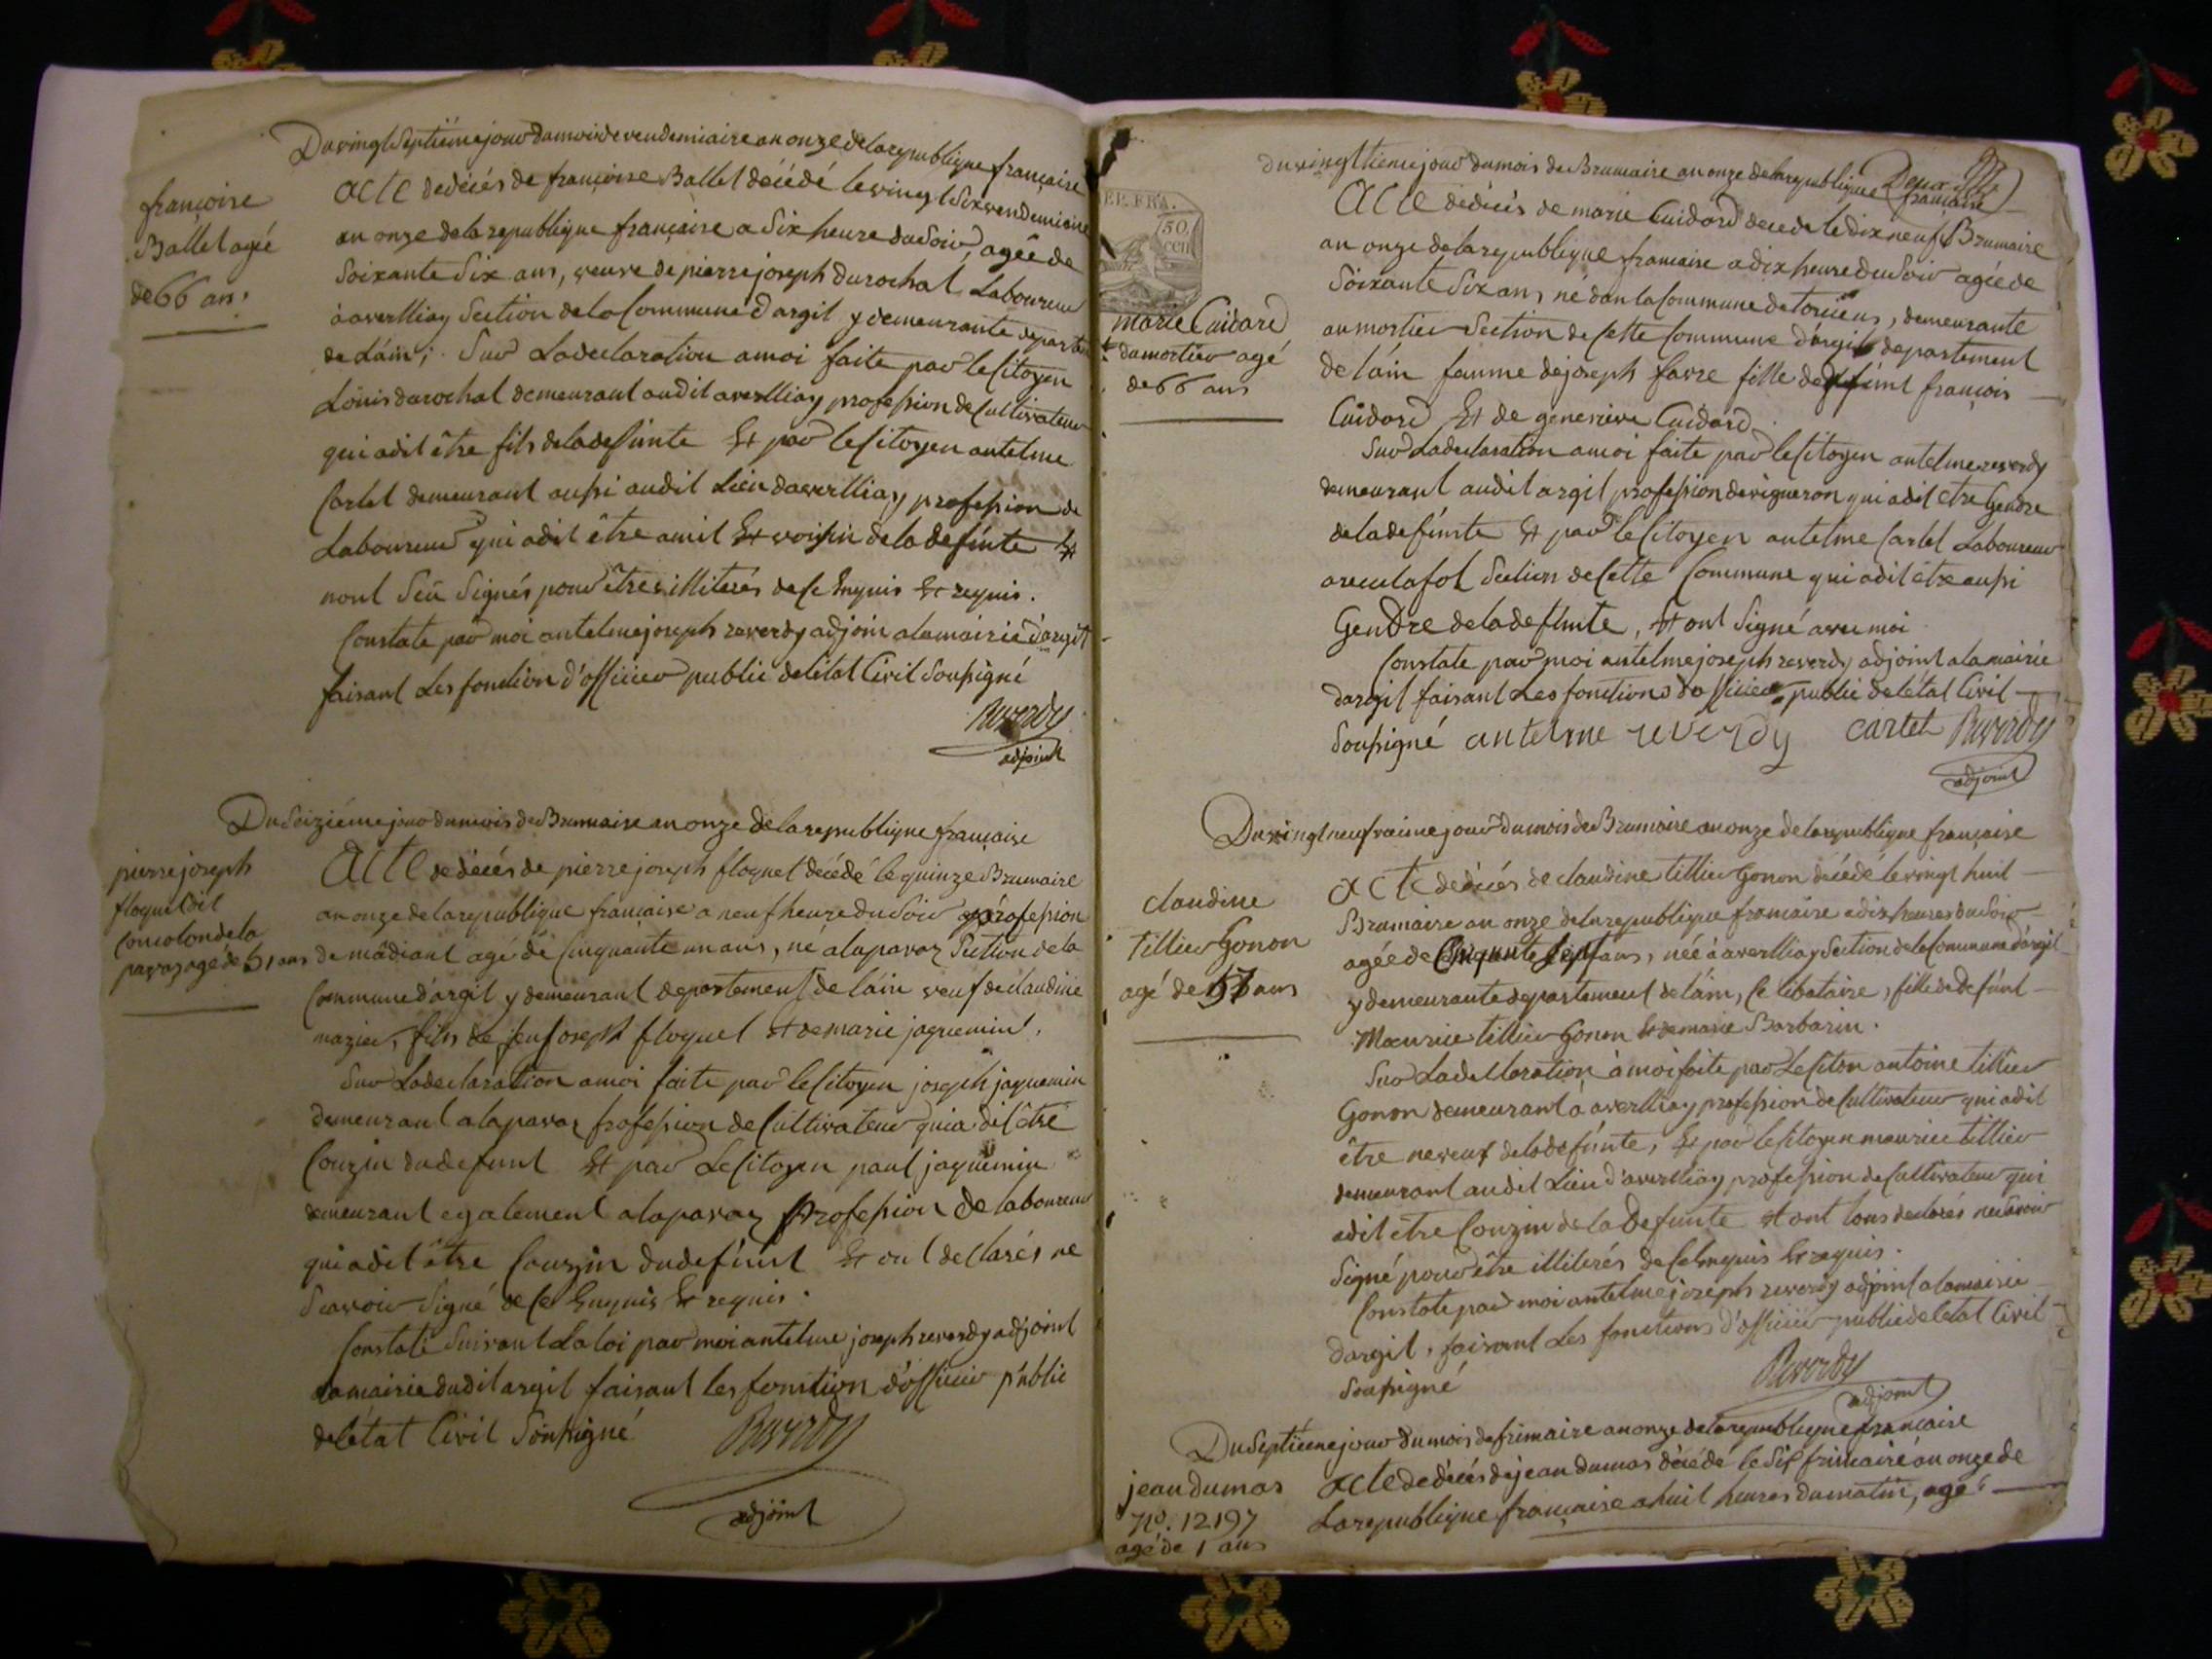 Du vingt Septiéme jour du mois de vendemiaire an onze de la republique française
françoise
Ballet agé
de 66 ans
Acte de décés de françoise Ballet décédé le vingt Six vendemiaire
an onze de la republique française a Six heure du Soir, agée de
Soixante Six ans, veuve de pierre joseph durochat Laboureur
à averlliay Section de la Commune d'argit y demeurante departt
de L'ain; Sur La declaration a moi faite par le Citoyen
Loüis durochat demeurant audit averlliay profession de Cultivateur
qui a dit être fils de la defünte Et par le Citoyen antelme
Cartet demeurant aussi audit Lieu daverlliay profession de
Laboureur qui a dit être amit Et voisin de la defünte Et
nont Seû Signés pour être illiterés de Ce Enquis Et requis.
Constate par moi antelme joseph reverdy adjoin a la mairie d'argit
faisant Les fonction d'officier public de l'état Civil Soussigné
Reverdy
adjoint
Du Seiziéme jour du mois de Brumaire an onze de la republique française
pierre joseph
floquet dit
de la
pavaz agé de 51 ans
Acte de décés de pierre joseph floquet décédé le quinze Brumaire
an onze de la republique française a neuf heure du Soir profession
de mâdiant agé de Cinquante un ans, né a lapavaz Section de la
Commune d'argit y demeurant departement de l'ain veuf de claudine
mazier, fils de feu joseph floquet Et de marie jaquemin.
Sur La declaration a moi faite par le Citoyen joseph jaquemin
demeurant a lapavaz profession de Cultivateur qui a dit être
Couzin du defunt Et par Le Citoyen paul jaquemin
demeurant egalement a lapavaz profession de laboureur
qui a dit être Couzin du defünt Et ont declarés ne
Scavoir Signé de Ce Enquis Et requis.
Constaté Suivant La loi par moi antelme joseph reverdy adjoint
a la mairie dudit argit faisant les fonction d'officier public
de l'état Civil Soussigné
Reverdy
adjoint
du vingtieme jour du mois de Brumaire an onze de la republique française
REP. FRA.
50
cen
marie Cuidard
du mortier agé
de 66 ans
Acte de décés de marie Cuidard décédé le dix neuf Brumaire
an onze de la republique française a dix heure du Soir agée de
Soixante Six ans, ne dan la Commune de torcieu, demeurante
au mortier Section de Cette Commune d'argit departement
de l'ain femme de joseph favre fille de défünt françois
Cuidard Et de genevieve Cuidard.
Sur La declaration a moi faite par le Citoyen antelme reverdy
demeurant audit argit profession de vigneron qui a dit etre Gendre
de la defünte Et par le Citoyen antelme Cartet Laboureur
Section de Cette Commune qui a dit être aussi
Gendre de la defünte, Et ont Signé avec moi
Constate par moi antelme joseph reverdy adjoint a la mairie
dargit faisant Les fonctions dofficier public de l'état Civil
Soussigné antelme reverdy cartet Reverdy
adjoint
Du vingt neufvaime jour du mois de Brumaire an onze de la republique française
claudine
tillier Gonon
agé de 57 ans
Acte de décés de claudine tillier Gonon décédé le vingt huit
Brumaire an onze de la republique francaise a dix heures du Soir
agée de Cinquante Sept ans, née à averlliay Section de la Commune d'argit
y demeurante departement de l'ain, Celibataire, fille de defünt
Maurice tillier Gonon Et de marie Barbarin.
Sur La declaration à moi faite par Le Citon antoine tillier
Gonon demeurant à averlliay profession de Cultivateur qui a dit
être neveux de la defünte, Et par le Citoyen maurice tillier
demeurant audit Lieu d'averlliay profession de Cultivateur qui
a dit être Couzin de la Defunte Et ont tous declarés ne Savoir
Signé pour être illiterés de Ce Enquis Et requis.
Constate par moi antelme joseph reverdy adjoint a la mairie
dargit, faisant Les fonctions d'officier public de l'etat Civil
Soussigné
Reverdy
adjoint
Du Septiéme jour du mois de frimaire an onze de la republique française
jean dumas
No. 12197
agé de 1 ans
Acte de décés de jean dumas décédé le Six frimaire an onze de
La republique française a huit heures du matin, agé